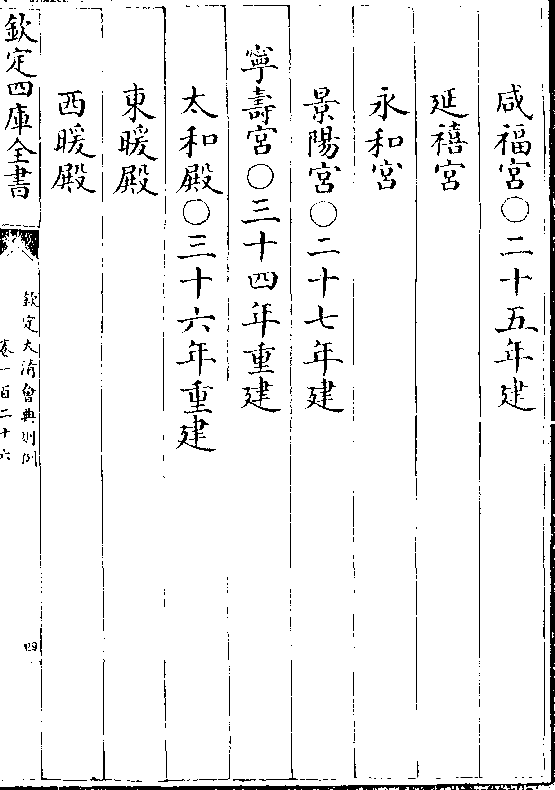 咸福宮○二十五年建
延禧宮
永和宮
景陽宮○二十七年建
寧壽宮○三十四年重建
太和殿○三十六年重建
東暖殿
西暖殿
欽定四庫全書
欽定大清會典則例
卷一百二十六
四